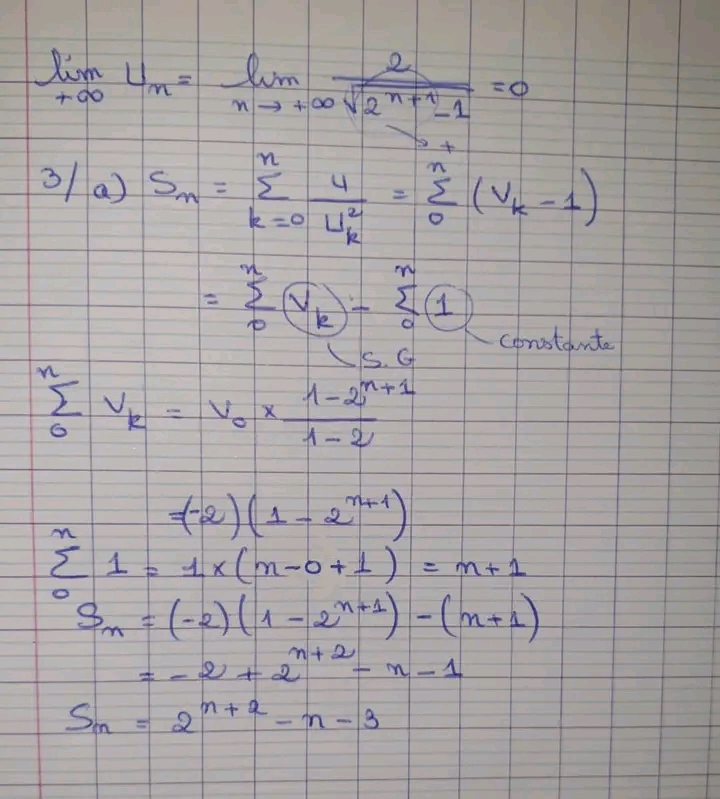 lim U_n = lim 2/√(2^(n+1) - 1) = 0
+∞ n → +∞
+
3/ a) S_n = Σ_(k=0)^n 4/U_k^2 = Σ_0^n (V_k - 1)
= Σ_0^n V_k - Σ_0^n 1
constante
S.G
Σ_0^n V_k = V_0 × (1 - 2^(n+1))/(1 - 2)
= (-2)(1 - 2^(n+1))
Σ_0^n 1 = 1 × (n - 0 + 1) = n + 1
S_n = (-2)(1 - 2^(n+1)) - (n + 1)
= -2 + 2^(n+2) - n - 1
S_n = 2^(n+2) - n - 3